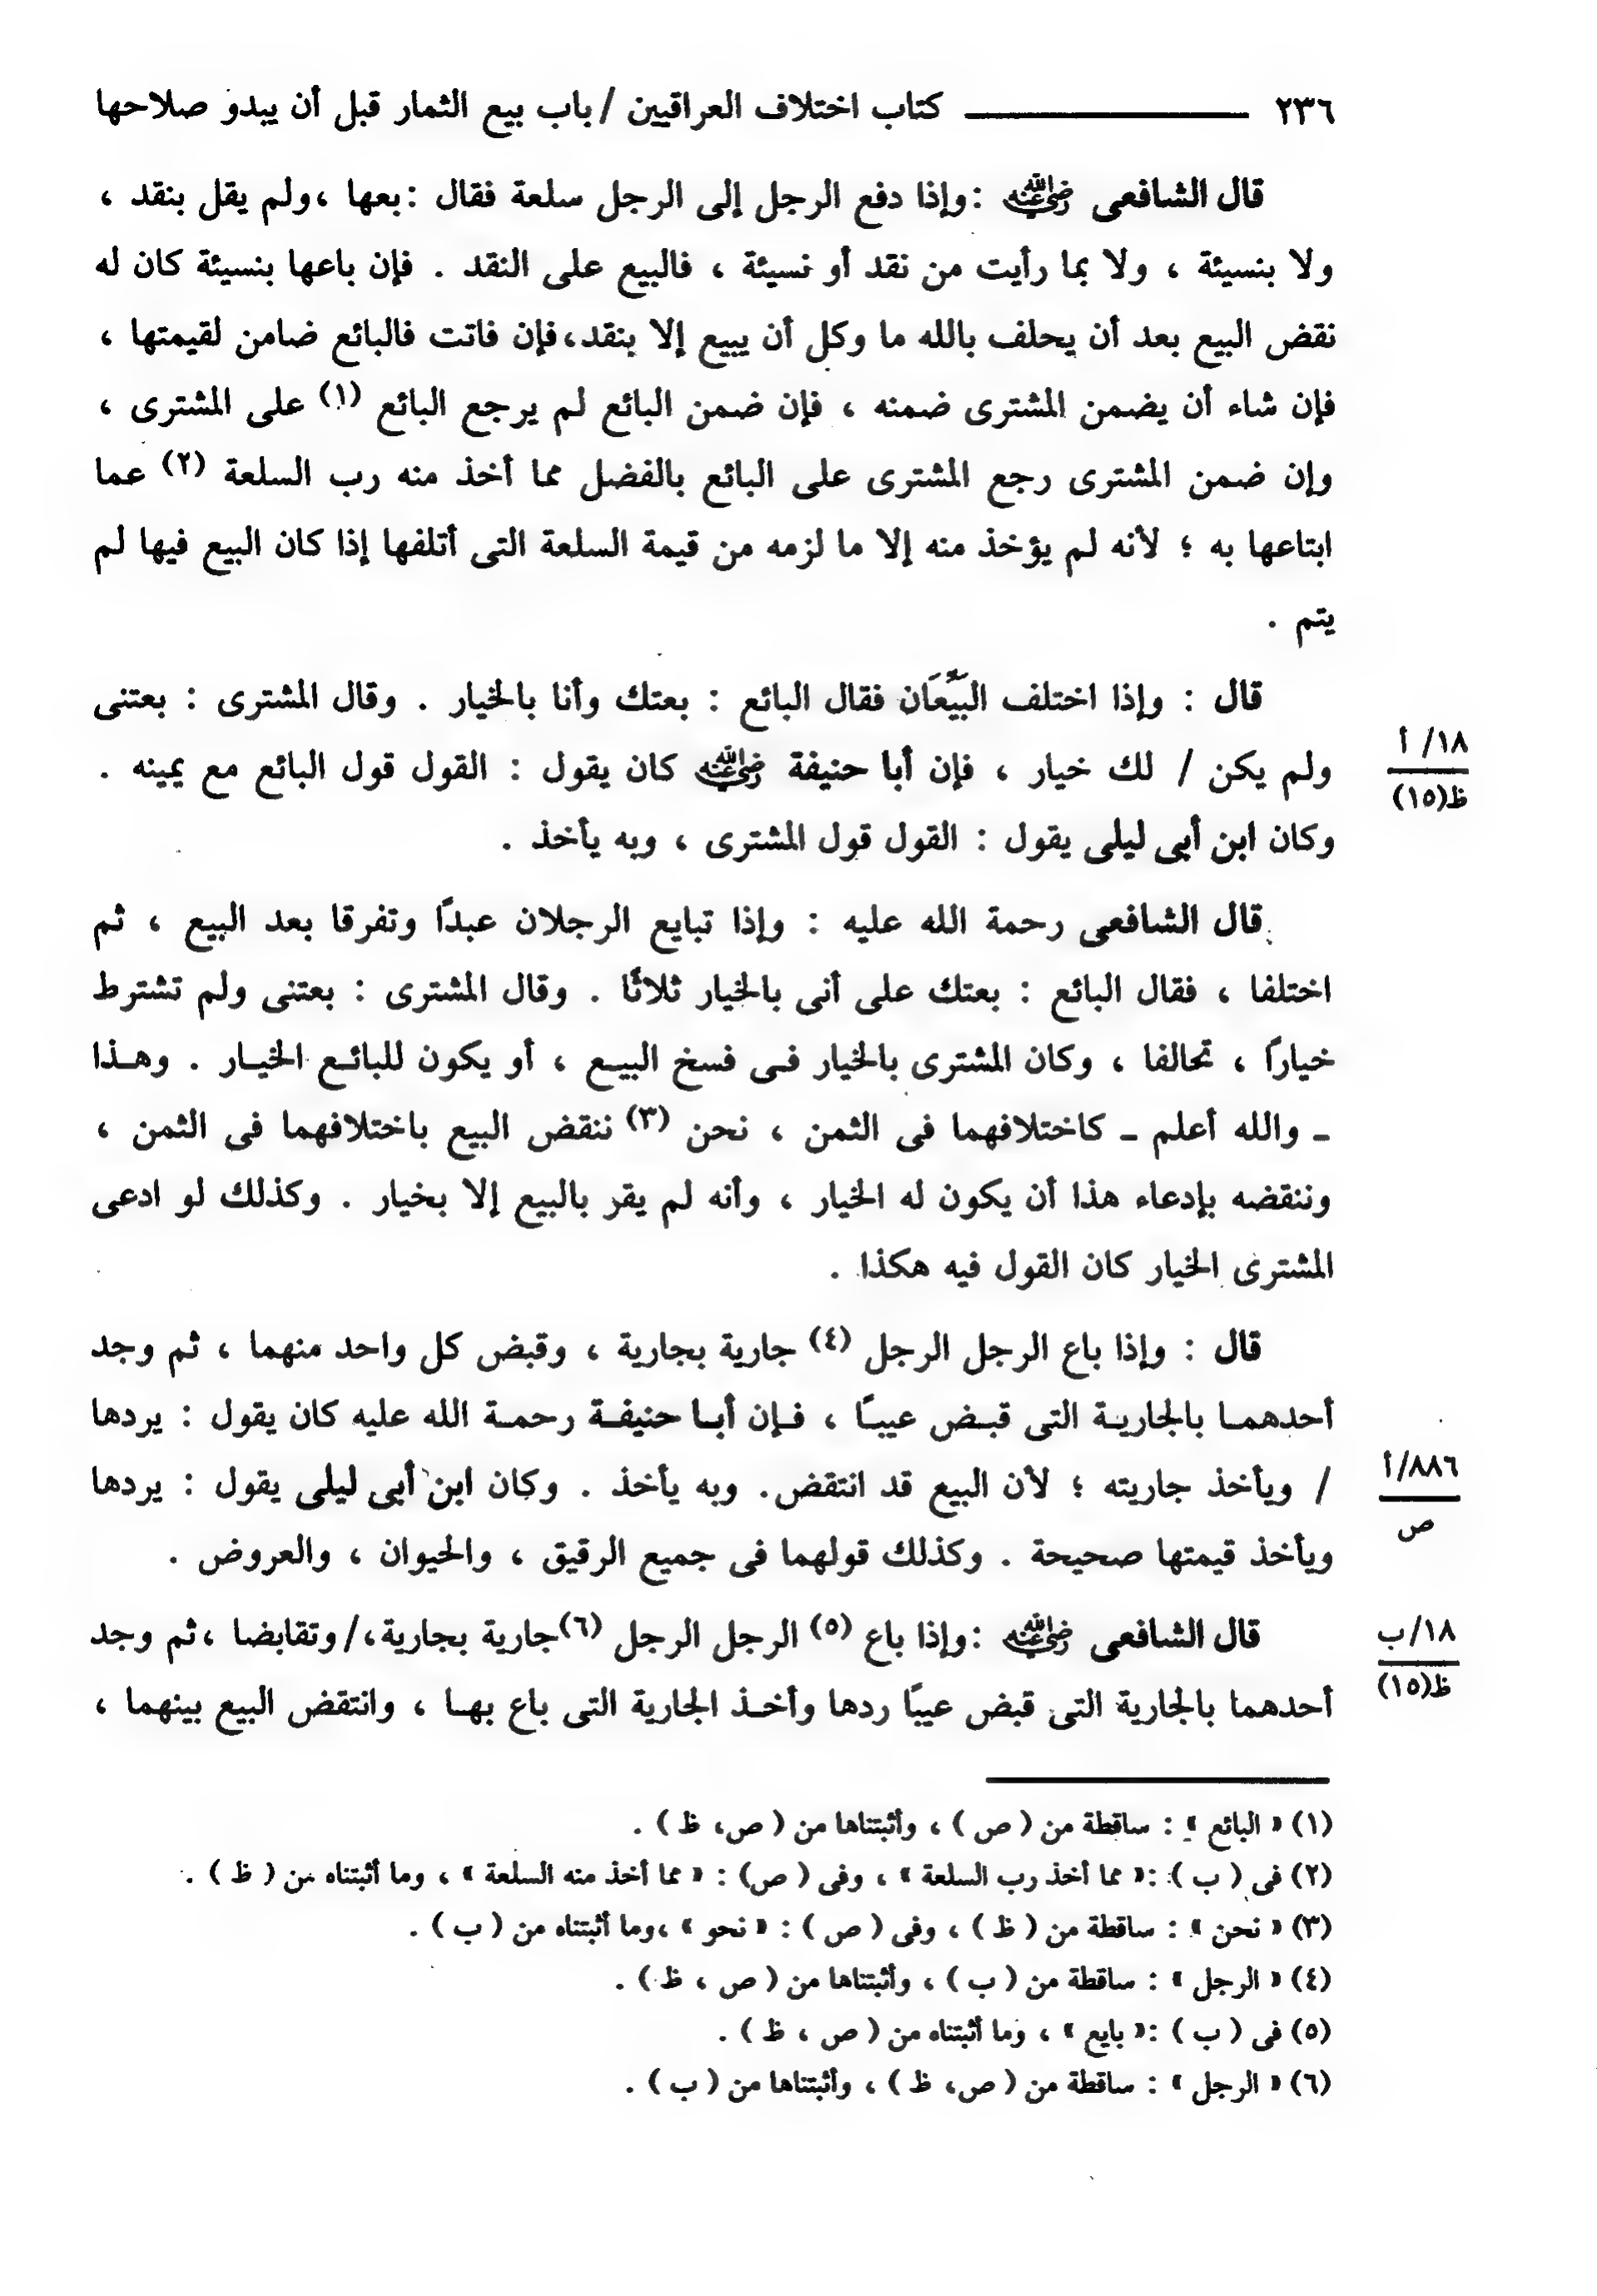 ٢٣٦ ــــــــــــ كتاب اختلاف العراقيين / باب بيع الثمار قبل أن يبدو صلاحها
قال الشافعى رضي الله عنه : وإذا دفع الرجل إلى الرجل سلعة فقال : بعها ، ولم يقل بنقد ،
ولا بنسيئة ، ولا بما رأيت من نقد أو نسيئة ، فالبيع على النقد . فإن باعها بنسيئة كان له
نقض البيع بعد أن يحلف بالله ما وكل أن يبيع إلا بنقد، فإن فاتت فالبائع ضامن لقيمتها ،
فإن شاء أن يضمن المشترى ضمنه ، فإن ضمن البائع لم يرجع البائع (١) على المشترى ،
وإن ضمن المشترى رجع المشترى على البائع بالفضل مما أخذ منه رب السلعة (٢) عما
ابتاعها به ؛ لأنه لم يؤخذ منه إلا ما لزمه من قيمة السلعة التى أتلفها إذا كان البيع فيها لم
يتم .
قال : وإذا اختلف البَيِّعَان فقال البائع : بعتك وأنا بالخيار . وقال المشترى : بعتنى
ولم يكن / لك خيار ، فإن أبا حنيفة رضي الله عنه كان يقول : القول قول البائع مع يمينه .
١٨/ أ
ظ(١٥)
وكان ابن أبى ليلى يقول : القول قول المشترى ، وبه يأخذ .
قال الشافعى رحمة الله عليه : وإذا تبايع الرجلان عبدًا وتفرقا بعد البيع ، ثم
اختلفا ، فقال البائع : بعتك على أنى بالخيار ثلاثًا . وقال المشترى : بعتنى ولم تشترط
خيارًا ، تحالفا ، وكان المشترى بالخيار فى فسخ البيع ، أو يكون للبائع الخيار . وهذا
ـ والله أعلم ـ كاختلافهما فى الثمن ، نحن (٣) ننقض البيع باختلافهما فى الثمن ،
وننقضه بإدعاء هذا أن يكون له الخيار ، وأنه لم يقر بالبيع إلا بخيار . وكذلك لو ادعى
المشترى الخيار كان القول فيه هكذا .
قال : وإذا باع الرجل الرجل (٤) جارية بجارية ، وقبض كل واحد منهما ، ثم وجد
أحدهما بالجارية التى قبض عيبًا ، فإن أبا حنيفة رحمة الله عليه كان يقول : يردها
/ ويأخذ جاريته ؛ لأن البيع قد انتقض . وبه يأخذ . وكان ابن أبى ليلى يقول : يردها
٨٨٦/أ
ص
ويأخذ قيمتها صحيحة . وكذلك قولهما فى جميع الرقيق ، والحيوان ، والعروض .
قال الشافعى رضي الله عنه : وإذا باع (٥) الرجل الرجل (٦) جارية بجارية، / وتقابضا ، ثم وجد
١٨/ب
ظ(١٥)
أحدهما بالجارية التى قبض عيبًا ردها وأخذ الجارية التى باع بها ، وانتقض البيع بينهما ،
(١) « البائع » : ساقطة من ( ص ) ، وأثبتناها من ( ص، ظ ) .
(٢) فى ( ب ) : « مما أخذ رب السلعة » ، وفى ( ص) : « مما أخذ منه السلعة » ، وما أثبتناه من ( ظ ) .
(٣) « نحن » : ساقطة من ( ظ ) ، وفى ( ص ) : « نحو » ، وما أثبتناه من ( ب ) .
(٤) « الرجل » : ساقطة من ( ب ) ، وأثبتناها من ( ص ، ظ ) .
(٥) فى ( ب ) : « بايع » ، وما أثبتناه من ( ص ، ظ ) .
(٦) « الرجل » : ساقطة من ( ص، ظ ) ، وأثبتناها من ( ب ) .